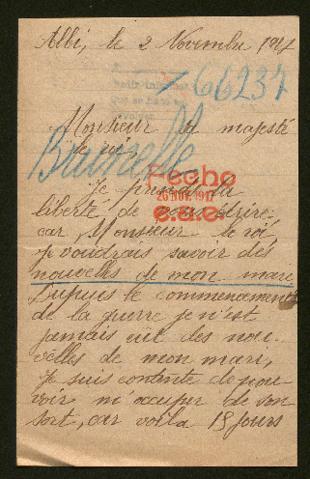 Albi, le 2 Novembre 1917
66237
Monsieur sa majesté
le roi,
Bruxelle
Fecho
Je prends la
26 NOV. 1917
liberté de vous écrire
e.a.e.
car, Monsieur le roi
je voudrais savoir des
nouvelles de mon mari
Dupuis le commencement
de la guerre je n'est
jamais eût des nou-
velles de mon mari,
je suis contente de pou-
voir m'occuper de son
sort, car voila 15 jours